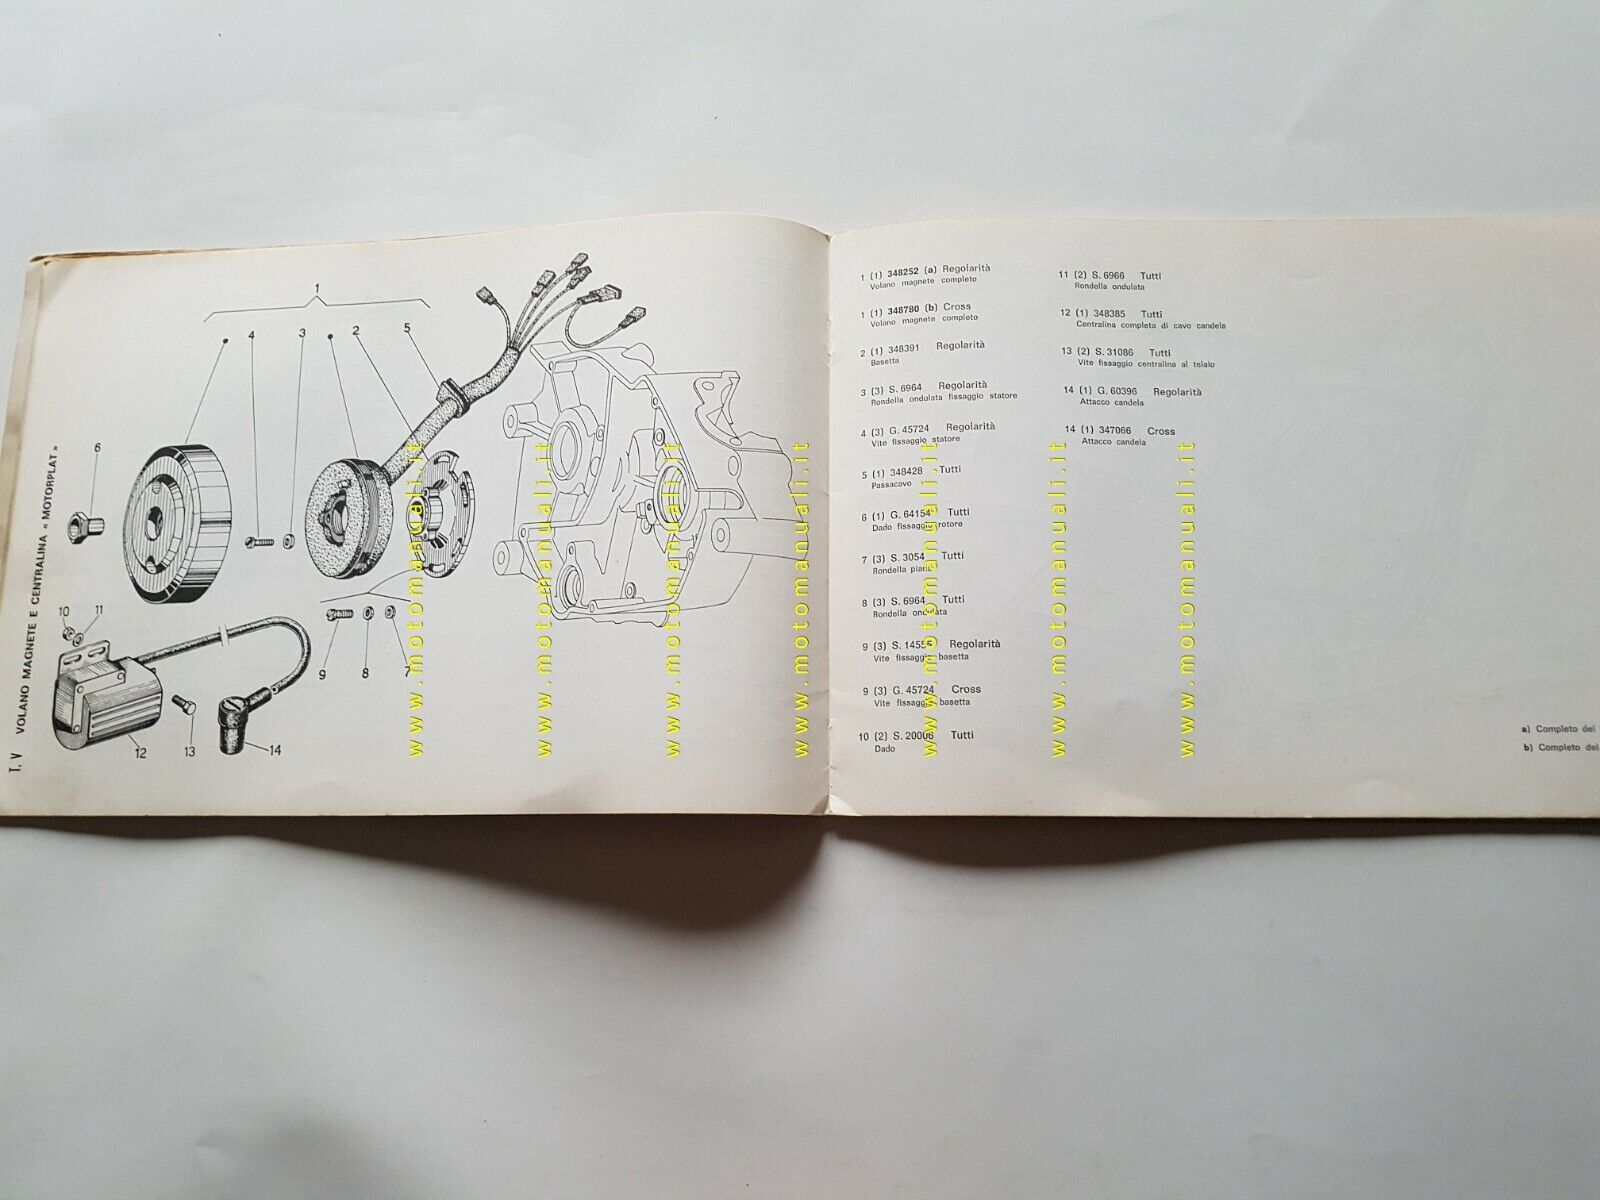 T. V VOLANO MAGNETE E CENTRALINA « MOTORPLAT »
1
4 3 2 5
6
10 11
9 8 7
12 13 14
1 (1) 348252 (a) Regolarità
Volano magnete completo
1 (1) 348780 (b) Cross
Volano magnete completo
2 (1) 348391 Regolarità
Basetta
3 (3) S. 6964 Regolarità
Rondella ondulata fissaggio statore
4 (3) G. 45724 Regolarità
Vite fissaggio statore
5 (1) 348428 Tutti
Passacavo
6 (1) G. 64154 Tutti
Dado fissaggio rotoro
7 (3) S. 3054 Tutti
Rondella piana
8 (3) S. 6964 Tutti
Rondella ondulata
9 (3) S. 14555 Regolarità
Vite fissaggio basetta
9 (3) G. 45724 Cross
Vite fissaggio basetta
10 (2) S. 20006 Tutti
Dado
11 (2) S. 6966 Tutti
Rondella ondulata
12 (1) 348385 Tutti
Centralina completa di cavo candela
13 (2) S. 31086 Tutti
Vite fissaggio centralina al telaio
14 (1) G. 60396 Regolarità
Attacco candela
14 (1) 347066 Cross
Attacco candela
a) Completo del
b) Completo del
www.motomanuali.it
www.motomanuali.it
www.motomanuali.it
www.motomanuali.it
www.motomanuali.it
www.motomanuali.it
www.motomanuali.it